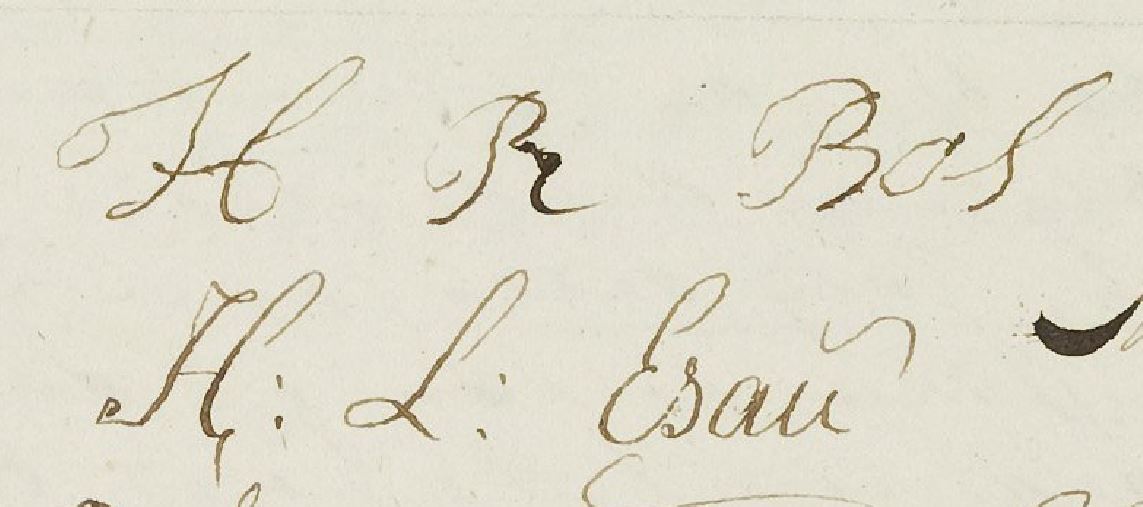 H R Bos
H: L: Esaú